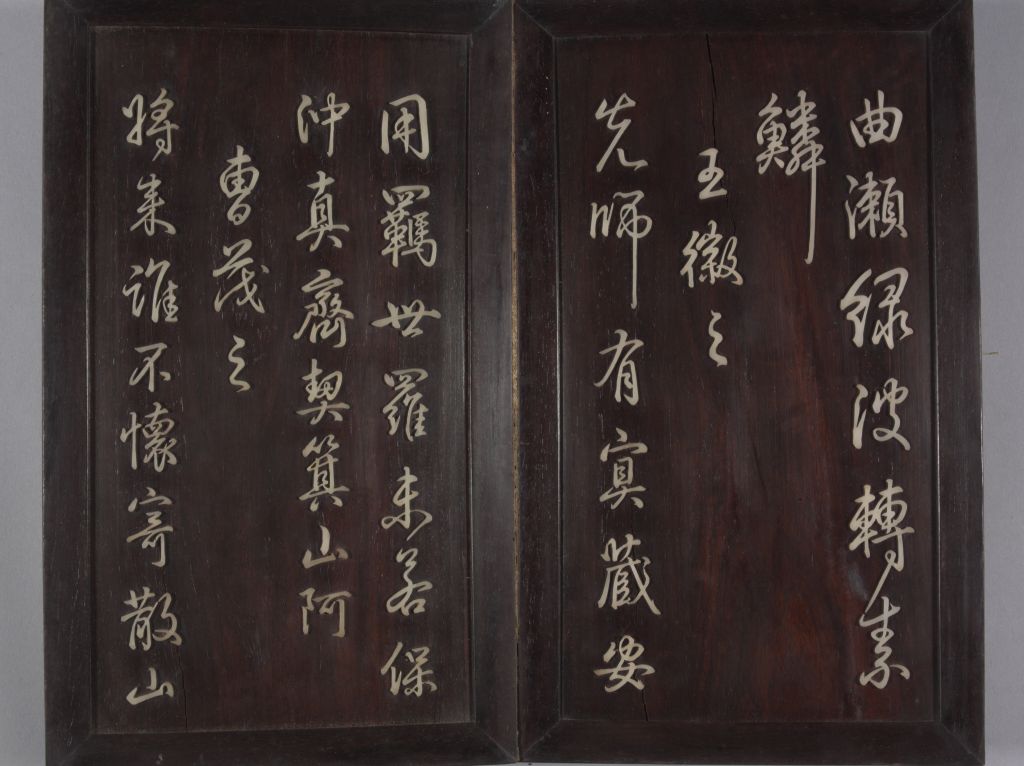 曲瀬緑波轉素
鱗
王徽之
先師有冥蔵安
用羈世羅未若保
沖真齊契箕山阿
曹茂之
時来誰不懷寄散山